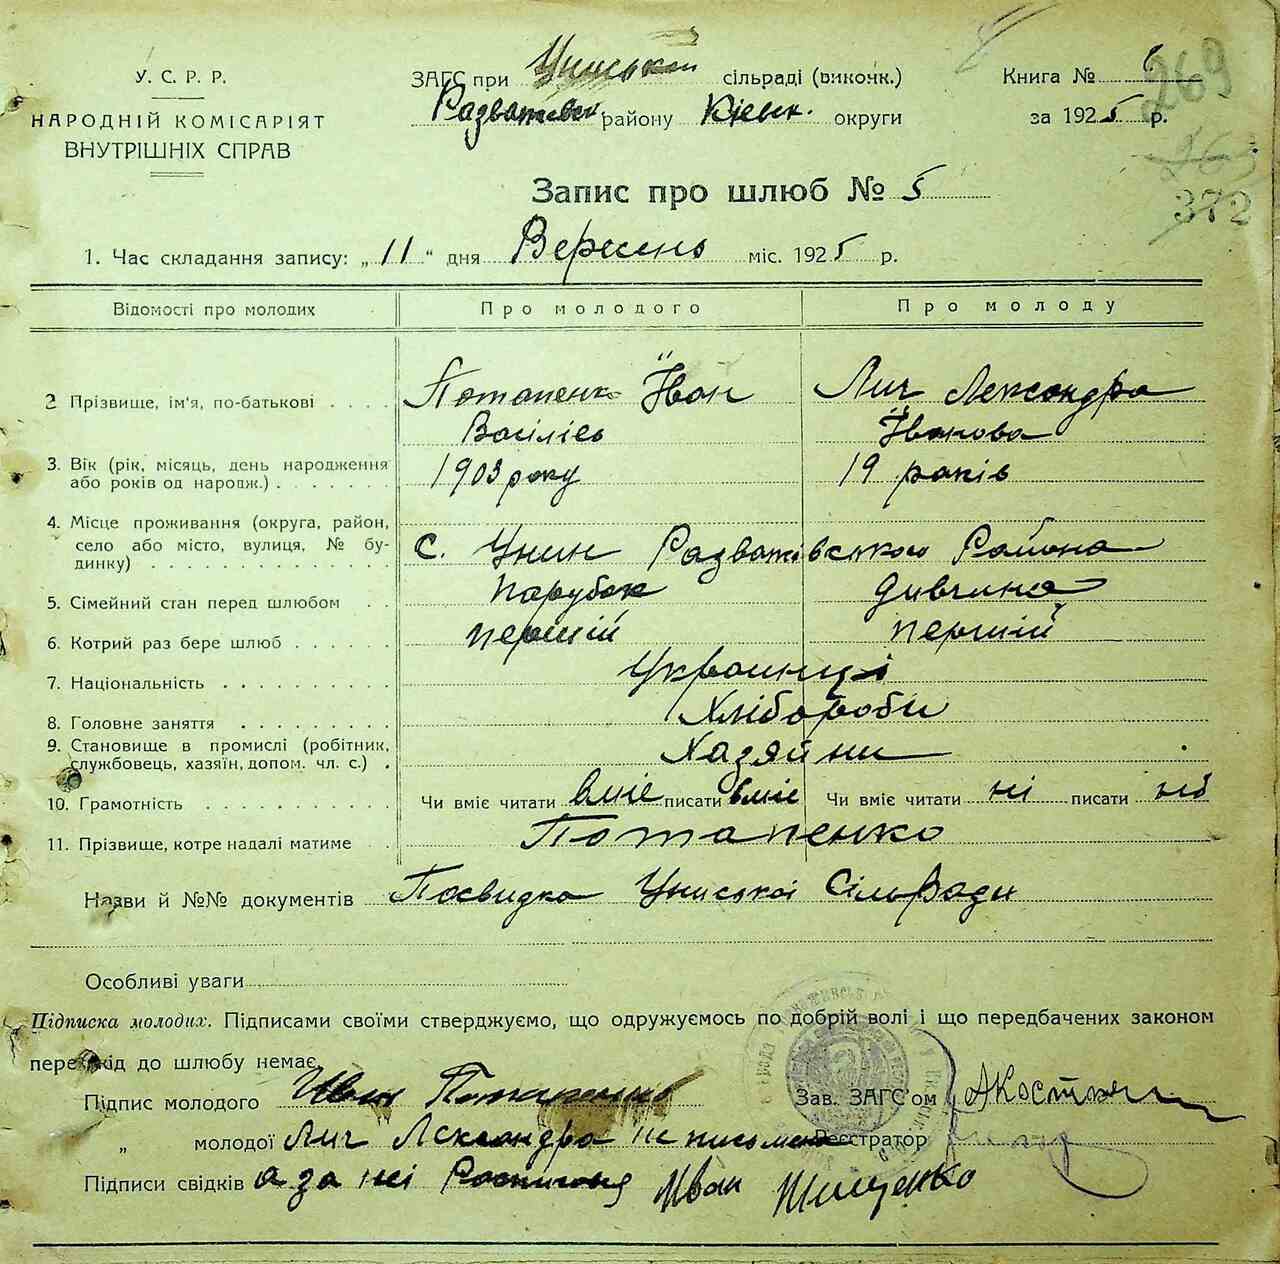 У. С. Р. Р.
НАРОДНІЙ КОМІСАРІЯТ
ВНУТРІШНІХ СПРАВ
ЗАГС при Униській сільраді (виконк.)
Розважівськ району Київськ. округи
Книга № 6
за 1925 р.
269
263
372
Запис про шлюб № 5
1. Час складання запису: „ 11 " дня Вересень міс. 1925 р.
Відомості про молодих Про молодого Про молоду
2 Прізвище, ім'я, по-батькові . . . . Потапенко Іван Лич Лександра
Васілів Іванова
3. Вік (рік, місяць, день народження 1903 року 19 років
або років од народж.) . . . . . . .
4. Місце проживання (округа, район,
село або місто, вулиця, № бу- с. Унин Разважівського Района
динку) . . . . . . . . . . . . . .
5. Сімейний стан перед шлюбом . . Парубок дивчина
6. Котрий раз бере шлюб . . . . . . першій першій
7. Національність . . . . . . . . . . Украинці
8. Головне заняття . . . . . . . . . Хлібороби
9. Становище в промислі (робітник, Хазяйни
службовець, хазяїн, допом. чл. с.) .
10. Грамотність . . . . . . . . . . . Чи вміє читати вміє писати вміє Чи вміє читати ні писати ні
11. Прізвище, котре надалі матиме . Потапенко
Назви й №№ документів Посвидка Униської Сільради
Особливі уваги
Підписка молодих. Підписами своїми стверджуємо, що одружуємось по добрій волі і що передбачених законом
перешкід до шлюбу немає.
Підпис молодого Иван Потапенко Зав. ЗАГС'ом АКостюк
„ молодої Лич Лександра не письмена Реєстратор
Підписи свідків а за неі Росписовся Иван Тищенко